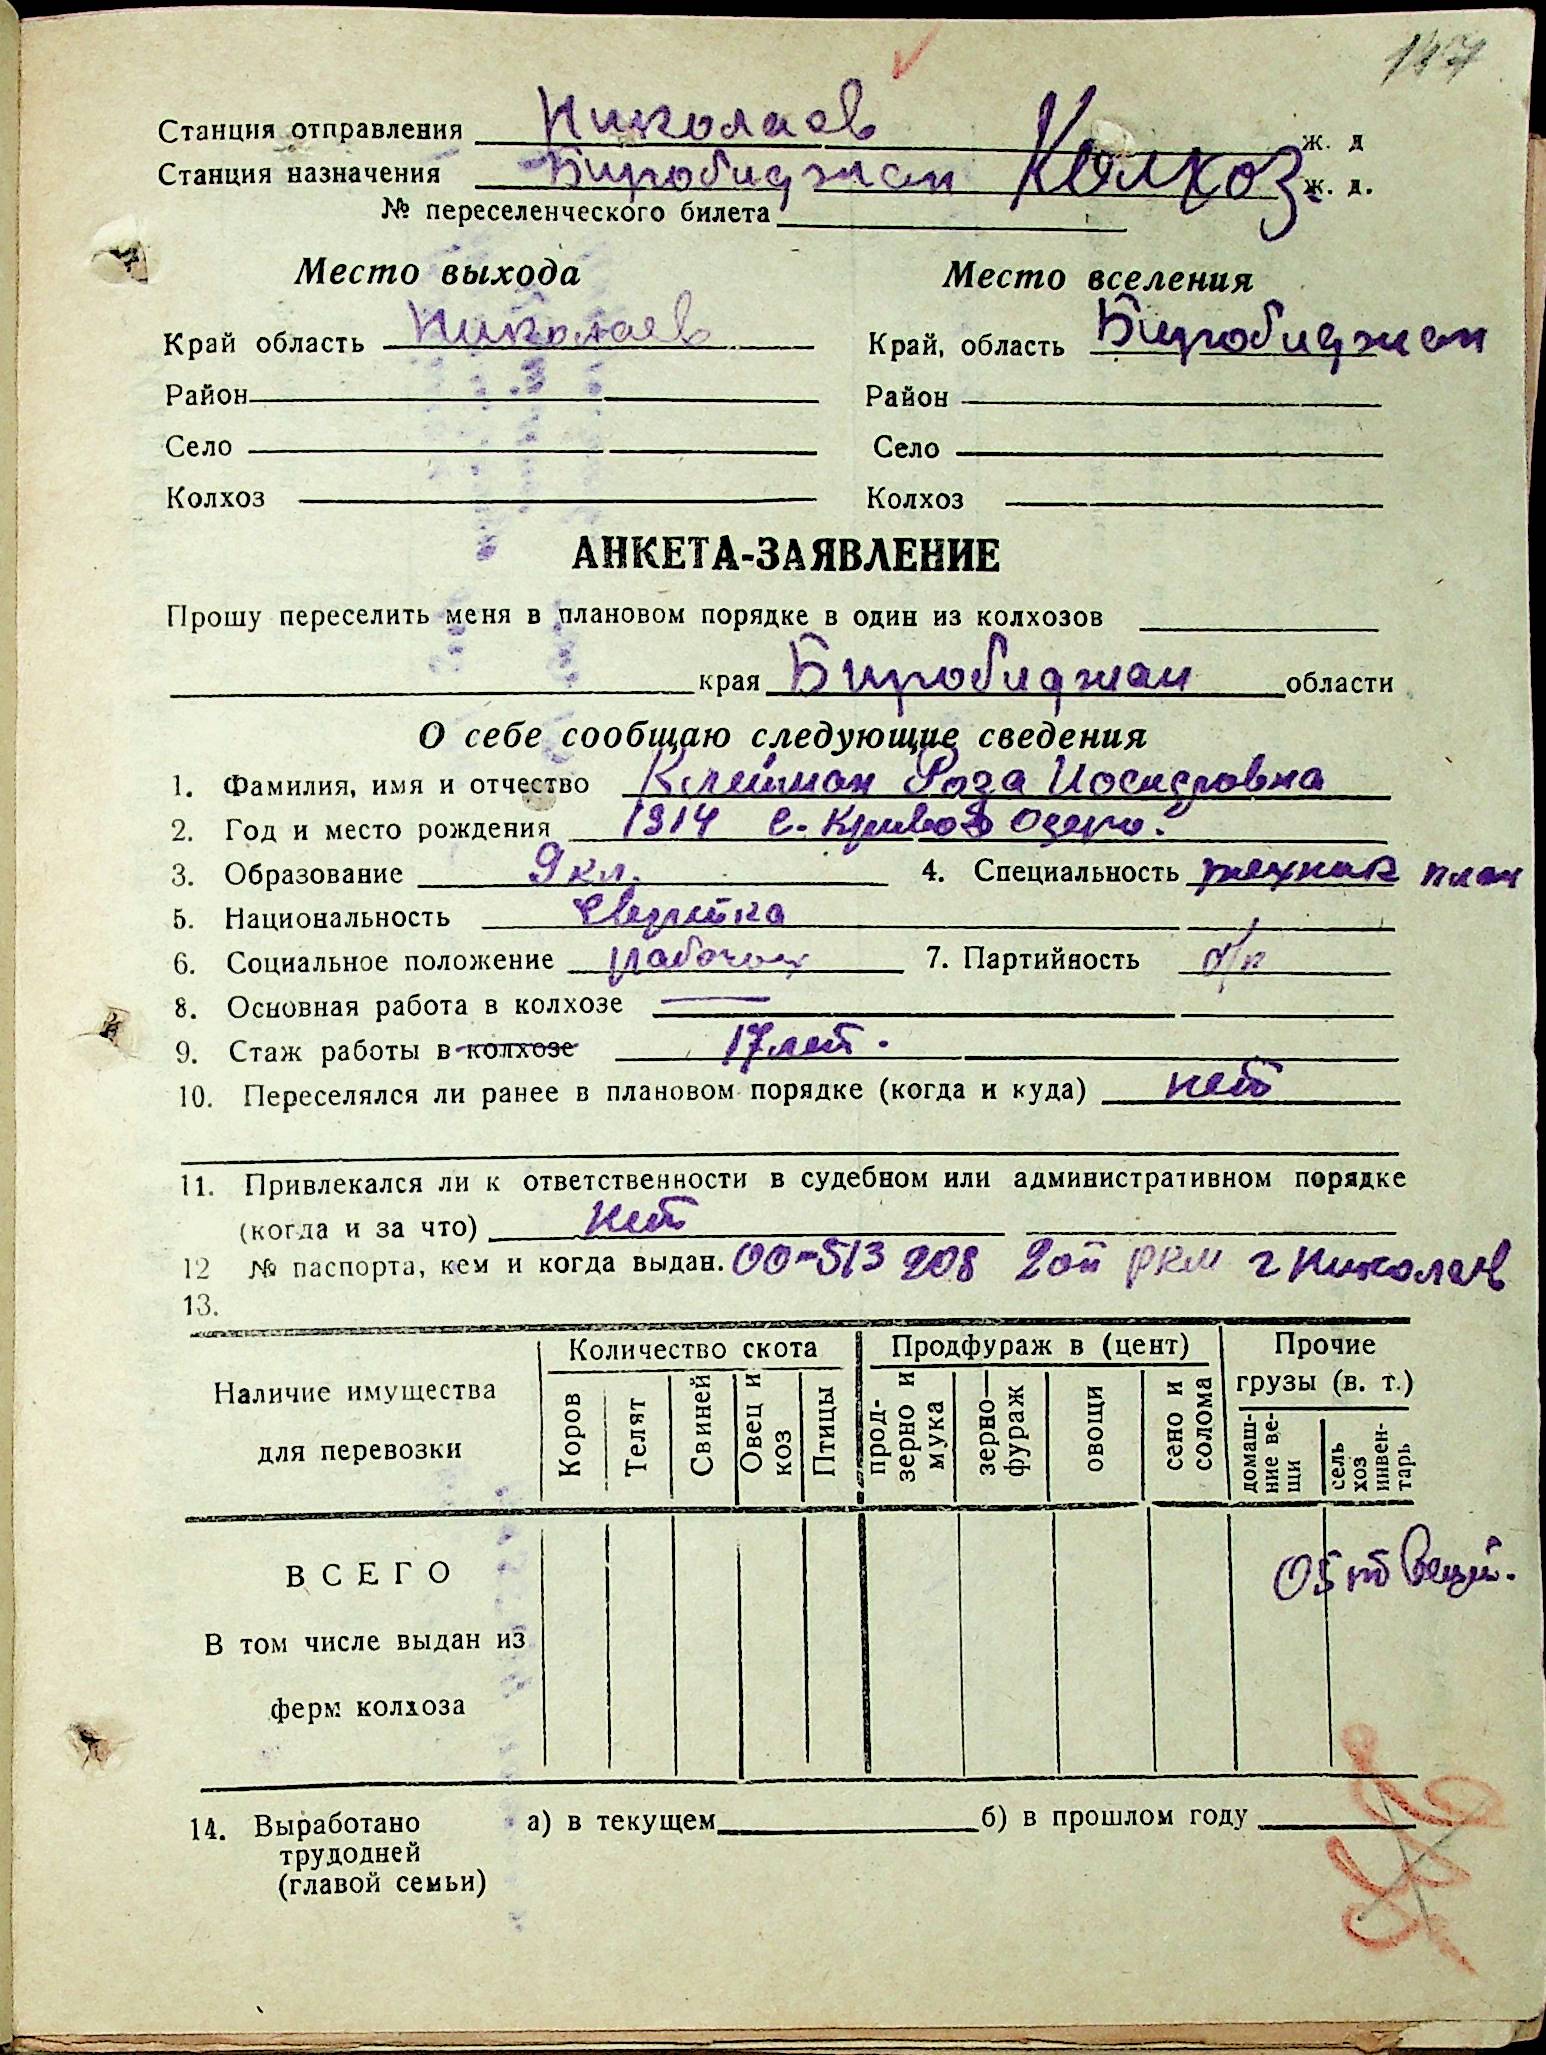 147
Станция отправления Николаев ж. д
Станция назначения Биробиджан Колхоз ж. д.
№ переселенческого билета
Место выхода
Край область Николаев
Район
Село
Колхоз
Место вселения
Край, область Биробиджан
Район
Село
Колхоз
АНКЕТА-ЗАЯВЛЕНИЕ
Прошу переселить меня в плановом порядке в один из колхозов
края Биробиджан области
О себе сообщаю следующие сведения
1. Фамилия, имя и отчество Клейман Роза Иосифовна
2. Год и место рождения 1914 с. Кривое Озеро.
3. Образование 9 кл. 4. Специальность техник план
5. Национальность еврейка
6. Социальное положение рабочая 7. Партийность б/п
8. Основная работа в колхозе —
9. Стаж работы в колхозе 17 лет.
10. Переселялся ли ранее в плановом порядке (когда и куда) нет
11. Привлекался ли к ответственности в судебном или административном порядке
(когда и за что) нет
12 № паспорта, кем и когда выдан. 00-513 208 2ой РКМ г Николаев
13.
Наличие имущества
для перевозки
Количество скота
Коров
Телят
Свиней
Овец и
коз
Птицы
Продфураж в (цент)
прод-
зерно и
мука
зерно-
фураж
овощи
сено и
солома
Прочие
грузы (в. т.)
домаш-
ние ве-
щи
сель
хоз
инвен-
тарь
ВСЕГО
05 т вещей.
В том числе выдан из
ферм колхоза
14. Выработано а) в текущем б) в прошлом году
трудодней
(главой семьи)